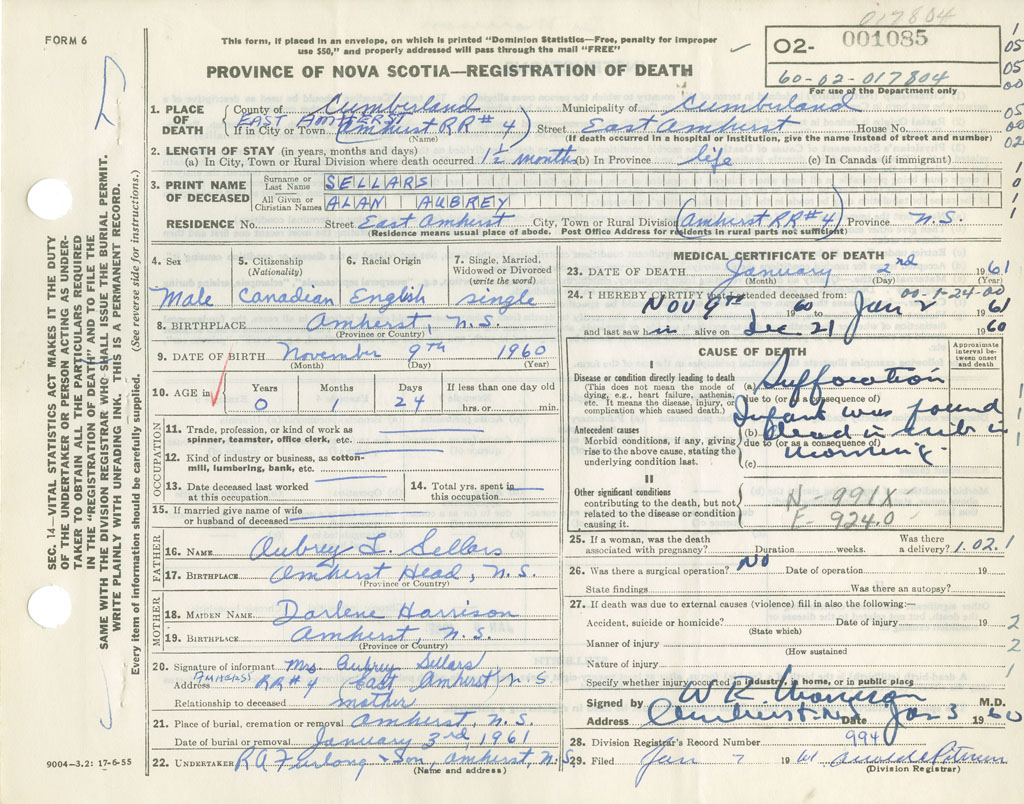 017804
FORM 6
This form, if placed in an envelope, on which is printed "Dominion Statistics—Free, penalty for improper
use $50," and properly addressed will pass through the mail "FREE"
PROVINCE OF NOVA SCOTIA—REGISTRATION OF DEATH
02- 001085
60-02-017804
For use of the Department only
1. PLACE OF DEATH
County of Cumberland Municipality of Cumberland
EAST AMHERST
If in City or Town (Amherst RR#4) Street East Amherst House No.
(Name) (If death occurred in a hospital or institution, give the name instead of street and number)
2. LENGTH OF STAY (in years, months and days)
(a) In City, Town or Rural Division where death occurred 1½ months (b) In Province life (c) In Canada (if immigrant)
3. PRINT NAME OF DECEASED
Surname or Last Name SELLARS
All Given or Christian Names ALAN AUBREY
RESIDENCE No. Street East Amherst City, Town or Rural Division (Amherst RR#4) Province N.S.
(Residence means usual place of abode. Post Office Address for residents in rural parts not sufficient)
4. Sex Male
5. Citizenship (Nationality) Canadian
6. Racial Origin English
7. Single, Married, Widowed or Divorced (write the word) single
8. BIRTHPLACE Amherst, N.S.
(Province or Country)
9. DATE OF BIRTH November 9th 1960
(Month) (Day) (Year)
10. AGE in Years Months Days If less than one day old
0 1 24 hrs. or min.
OCCUPATION
11. Trade, profession, or kind of work as
spinner, teamster, office clerk, etc.
12. Kind of industry or business, as cotton-
mill, lumbering, bank, etc.
13. Date deceased last worked
at this occupation
14. Total yrs. spent in
this occupation
15. If married give name of wife
or husband of deceased
FATHER
16. NAME Aubrey L. Sellars
17. BIRTHPLACE Amherst Head, N.S.
(Province or Country)
MOTHER
18. MAIDEN NAME Darlene Harrison
19. BIRTHPLACE Amherst, N.S.
(Province or Country)
20. Signature of informant Mrs. Aubrey Sellars
AMHERST
Address RR#4 (East Amherst) N S
Relationship to deceased mother
21. Place of burial, cremation or removal Amherst, N.S.
Date of burial or removal January 3rd, 1961
22. UNDERTAKER R A Furlong & Son, Amherst, N.S.
(Name and address)
MEDICAL CERTIFICATE OF DEATH
23. DATE OF DEATH January 2nd 1961
(Month) (Day) (Year)
00-1-24-00
24. I HEREBY CERTIFY that I attended deceased from:
Nov 9th 1960 to Jan 2 1961
and last saw him alive on Dec 21 1960
CAUSE OF DEATH
Approximate interval between onset and death
I
Disease or condition directly leading to death
(This does not mean the mode of
dying, e.g., heart failure, asthenia,
etc. It means the disease, injury, or
complication which caused death.)
(a) Suffocation
due to (or as a consequence of)
Antecedent causes
Morbid conditions, if any, giving
rise to the above cause, stating the
underlying condition last.
Infant was found
(b) dead in crib in
due to (or as a consequence of)
morning.
(c)
II
Other significant conditions
contributing to the death, but not
related to the disease or condition
causing it.
N-991X
E-924.0
25. If a woman, was the death
associated with pregnancy? Duration weeks. Was there a delivery? 1.02.1
26. Was there a surgical operation? No Date of operation 19
State findings Was there an autopsy?
27. If death was due to external causes (violence) fill in also the following:—
Accident, suicide or homicide? Date of injury 19 2
(State which)
Manner of injury 2
(How sustained
Nature of injury 1
Specify whether injury occurred in industry, in home, or in public place
Signed by M.D.
Address Amherst NS Date Jan 3 1960
28. Division Registrar's Record Number 994
29. Filed Jan 7 19 61
(Division Registrar)
SEC. 14—VITAL STATISTICS ACT MAKES IT THE DUTY
OF THE UNDERTAKER OR PERSON ACTING AS UNDER-
TAKER TO OBTAIN ALL THE PARTICULARS REQUIRED
IN THE "REGISTRATION OF DEATH" AND TO FILE THE
SAME WITH THE DIVISION REGISTRAR WHO SHALL ISSUE THE BURIAL PERMIT.
WRITE PLAINLY WITH UNFADING INK. THIS IS A PERMANENT RECORD.
Every item of information should be carefully supplied. (See reverse side for instructions.)
9004—3.2: 17-6-55